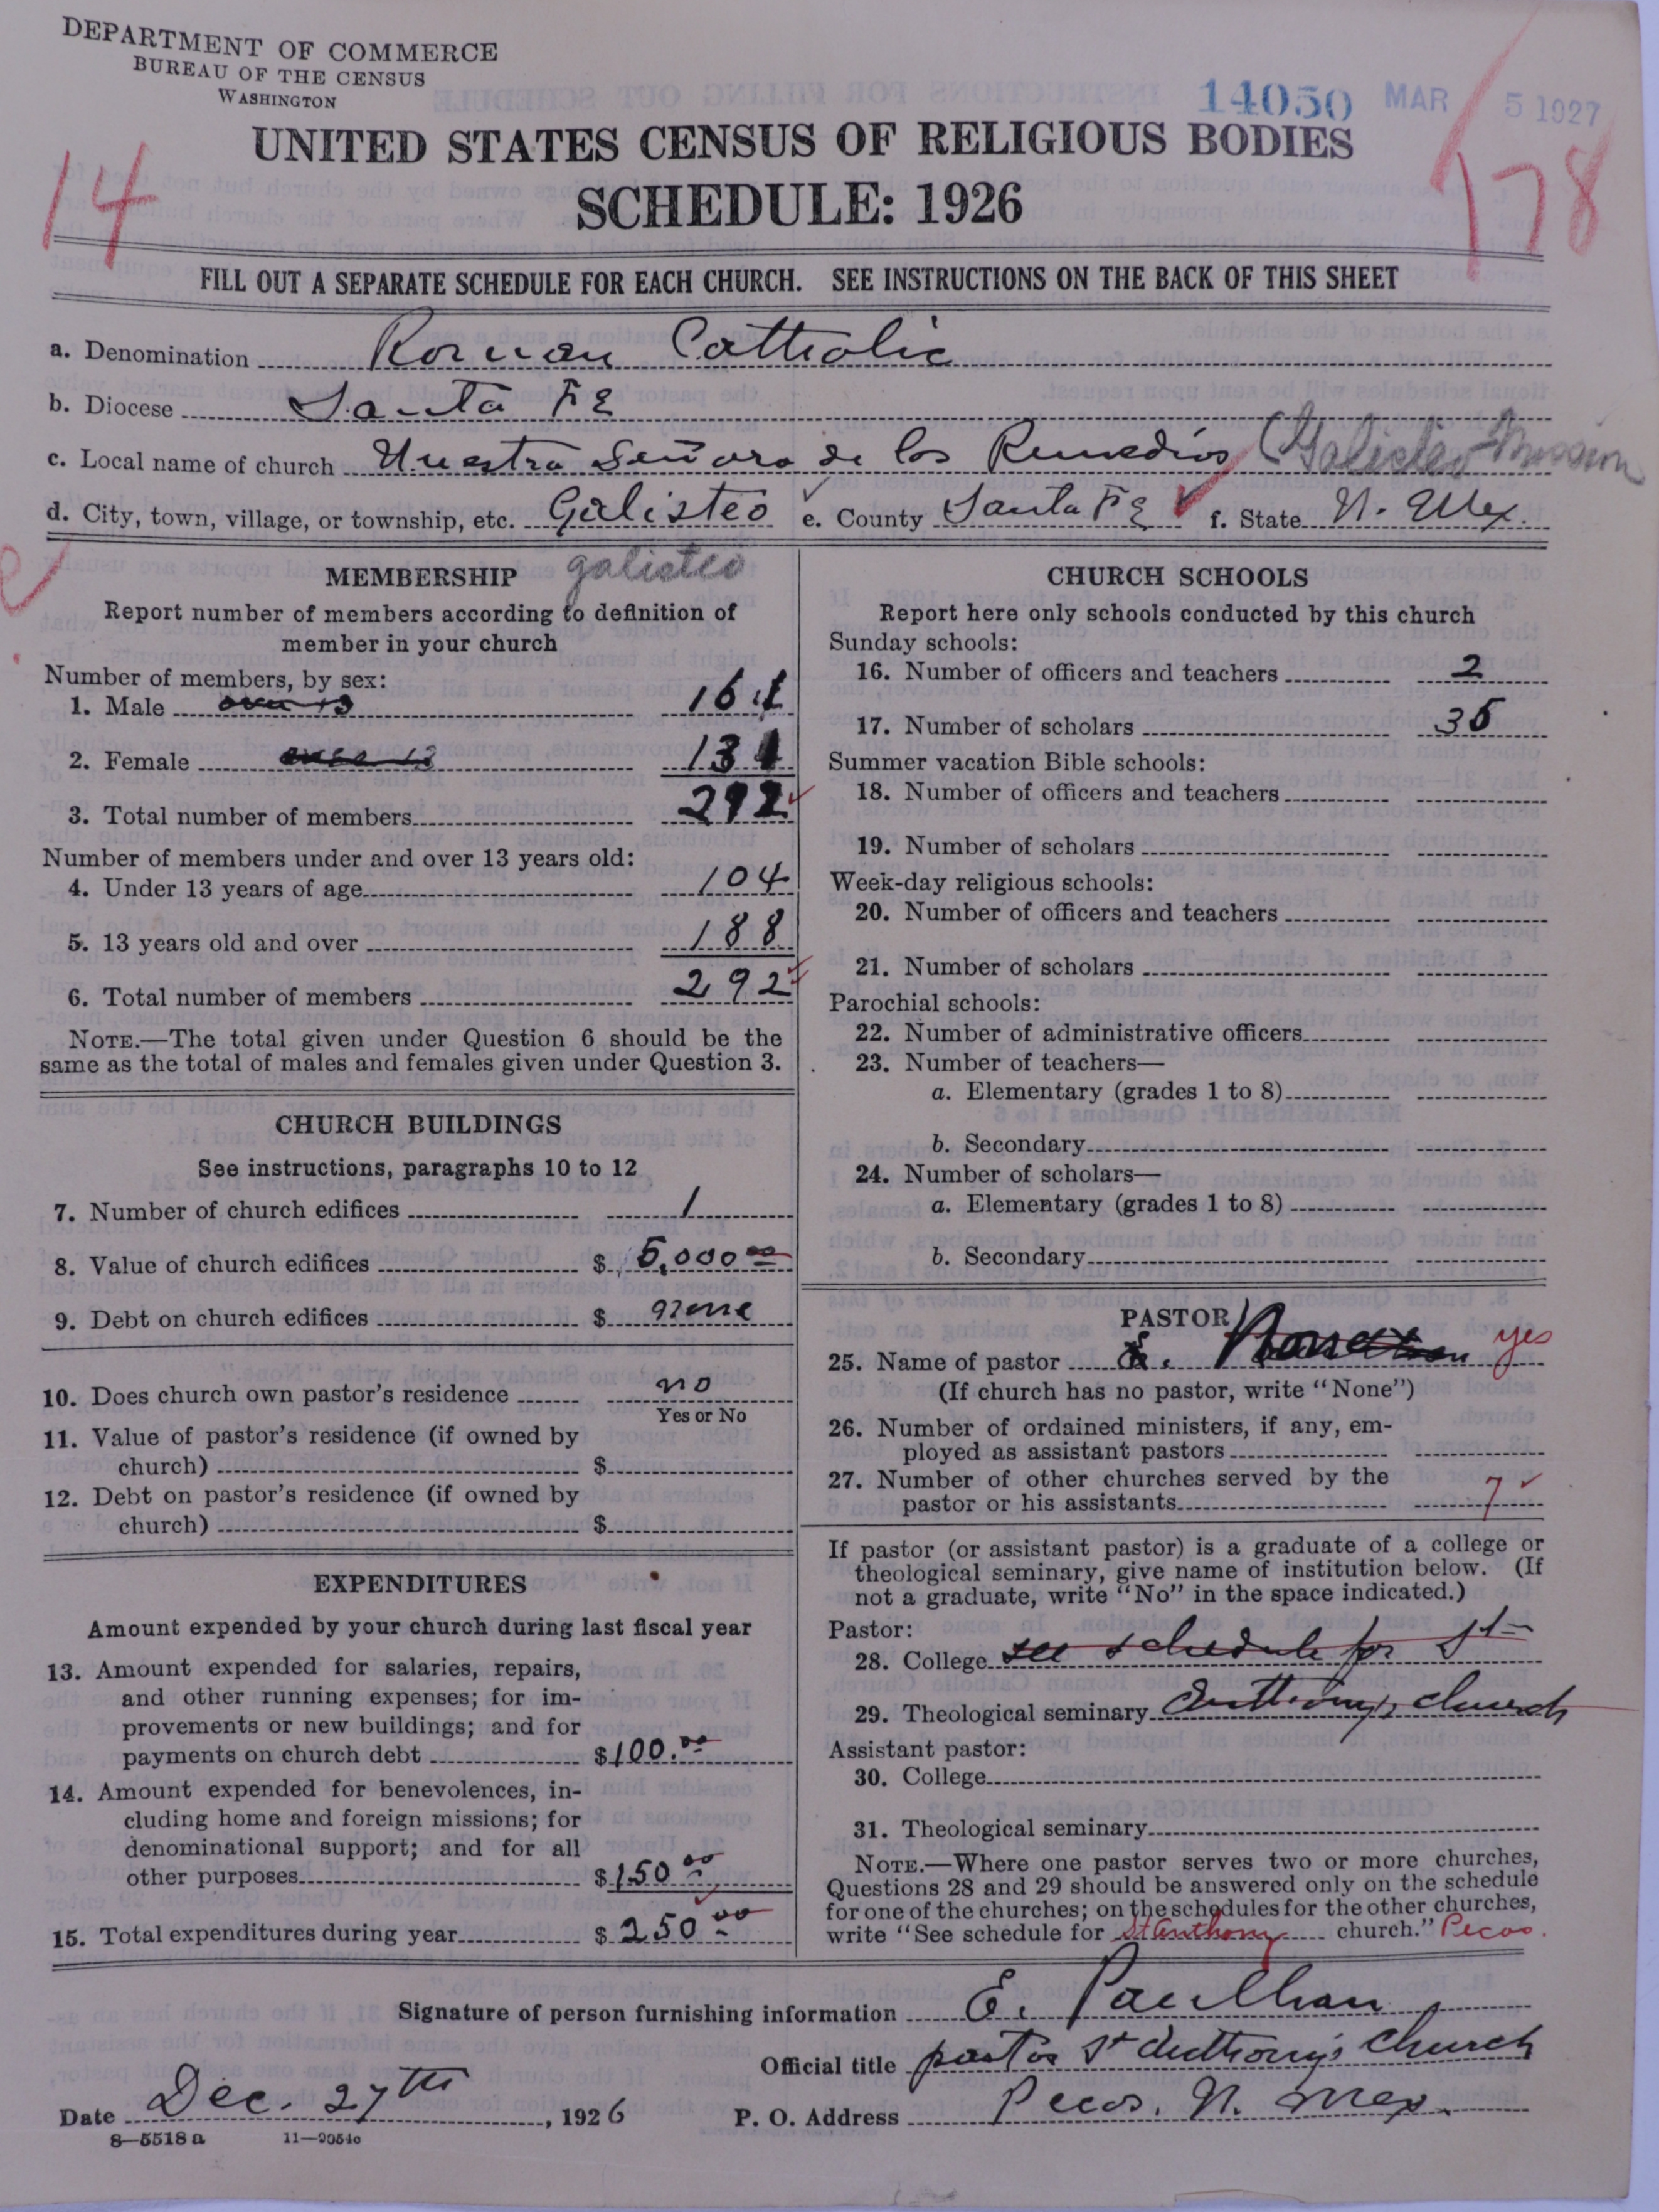 DEPARTMENT OF COMMERCE
BUREAU OF THE CENSUS
WASHINGTON
14050 MAR 5 1927
UNITED STATES CENSUS OF RELIGIOUS BODIES
SCHEDULE: 1926
14
178
FILL OUT A SEPARATE SCHEDULE FOR EACH CHURCH. SEE INSTRUCTIONS ON THE BACK OF THIS SHEET
a. Denomination Roman Catholic
b. Diocese Santa FE
c. Local name of church Nuestra Señora de los Remedios (Galisteo Mission
d. City, town, village, or township, etc. Galisteo e. County Santa FE f. State N. Mex.
galisteo
MEMBERSHIP
Report number of members according to definition of
member in your church
Number of members, by sex:
1. Male over 13 161
2. Female over 13 131
3. Total number of members 292
Number of members under and over 13 years old:
4. Under 13 years of age 104
5. 13 years old and over 188
6. Total number of members 292
NOTE.—The total given under Question 6 should be the
same as the total of males and females given under Question 3.
CHURCH BUILDINGS
See instructions, paragraphs 10 to 12
7. Number of church edifices 1
8. Value of church edifices $ 5,000 00
9. Debt on church edifices $ none
10. Does church own pastor's residence no
Yes or No
11. Value of pastor's residence (if owned by
church) $
12. Debt on pastor's residence (if owned by
church) $
EXPENDITURES
Amount expended by your church during last fiscal year
13. Amount expended for salaries, repairs,
and other running expenses; for im-
provements or new buildings; and for
payments on church debt $ 100.00
14. Amount expended for benevolences, in-
cluding home and foreign missions; for
denominational support; and for all
other purposes $ 150 00
15. Total expenditures during year $ 250 00
CHURCH SCHOOLS
Report here only schools conducted by this church
Sunday schools:
16. Number of officers and teachers 2
17. Number of scholars 35
Summer vacation Bible schools:
18. Number of officers and teachers
19. Number of scholars
Week-day religious schools:
20. Number of officers and teachers
21. Number of scholars
Parochial schools:
22. Number of administrative officers
23. Number of teachers—
a. Elementary (grades 1 to 8)
b. Secondary
24. Number of scholars—
a. Elementary (grades 1 to 8)
b. Secondary
PASTOR
25. Name of pastor None yes
(If church has no pastor, write "None")
26. Number of ordained ministers, if any, em-
ployed as assistant pastors
27. Number of other churches served by the
pastor or his assistants 7
If pastor (or assistant pastor) is a graduate of a college or
theological seminary, give name of institution below. (If
not a graduate, write "No" in the space indicated.)
Pastor:
28. College see schedule for St
29. Theological seminary Anthony's church
Assistant pastor:
30. College
31. Theological seminary
NOTE.—Where one pastor serves two or more churches,
Questions 28 and 29 should be answered only on the schedule
for one of the churches; on the schedules for the other churches,
write "See schedule for St Anthony church." Pecos.
Signature of person furnishing information E. Paulhan
Official title pastor St Anthony's Church
Date Dec. 27th, 1926 P. O. Address Pecos. N. Mex.
8—5518a 11—9054c